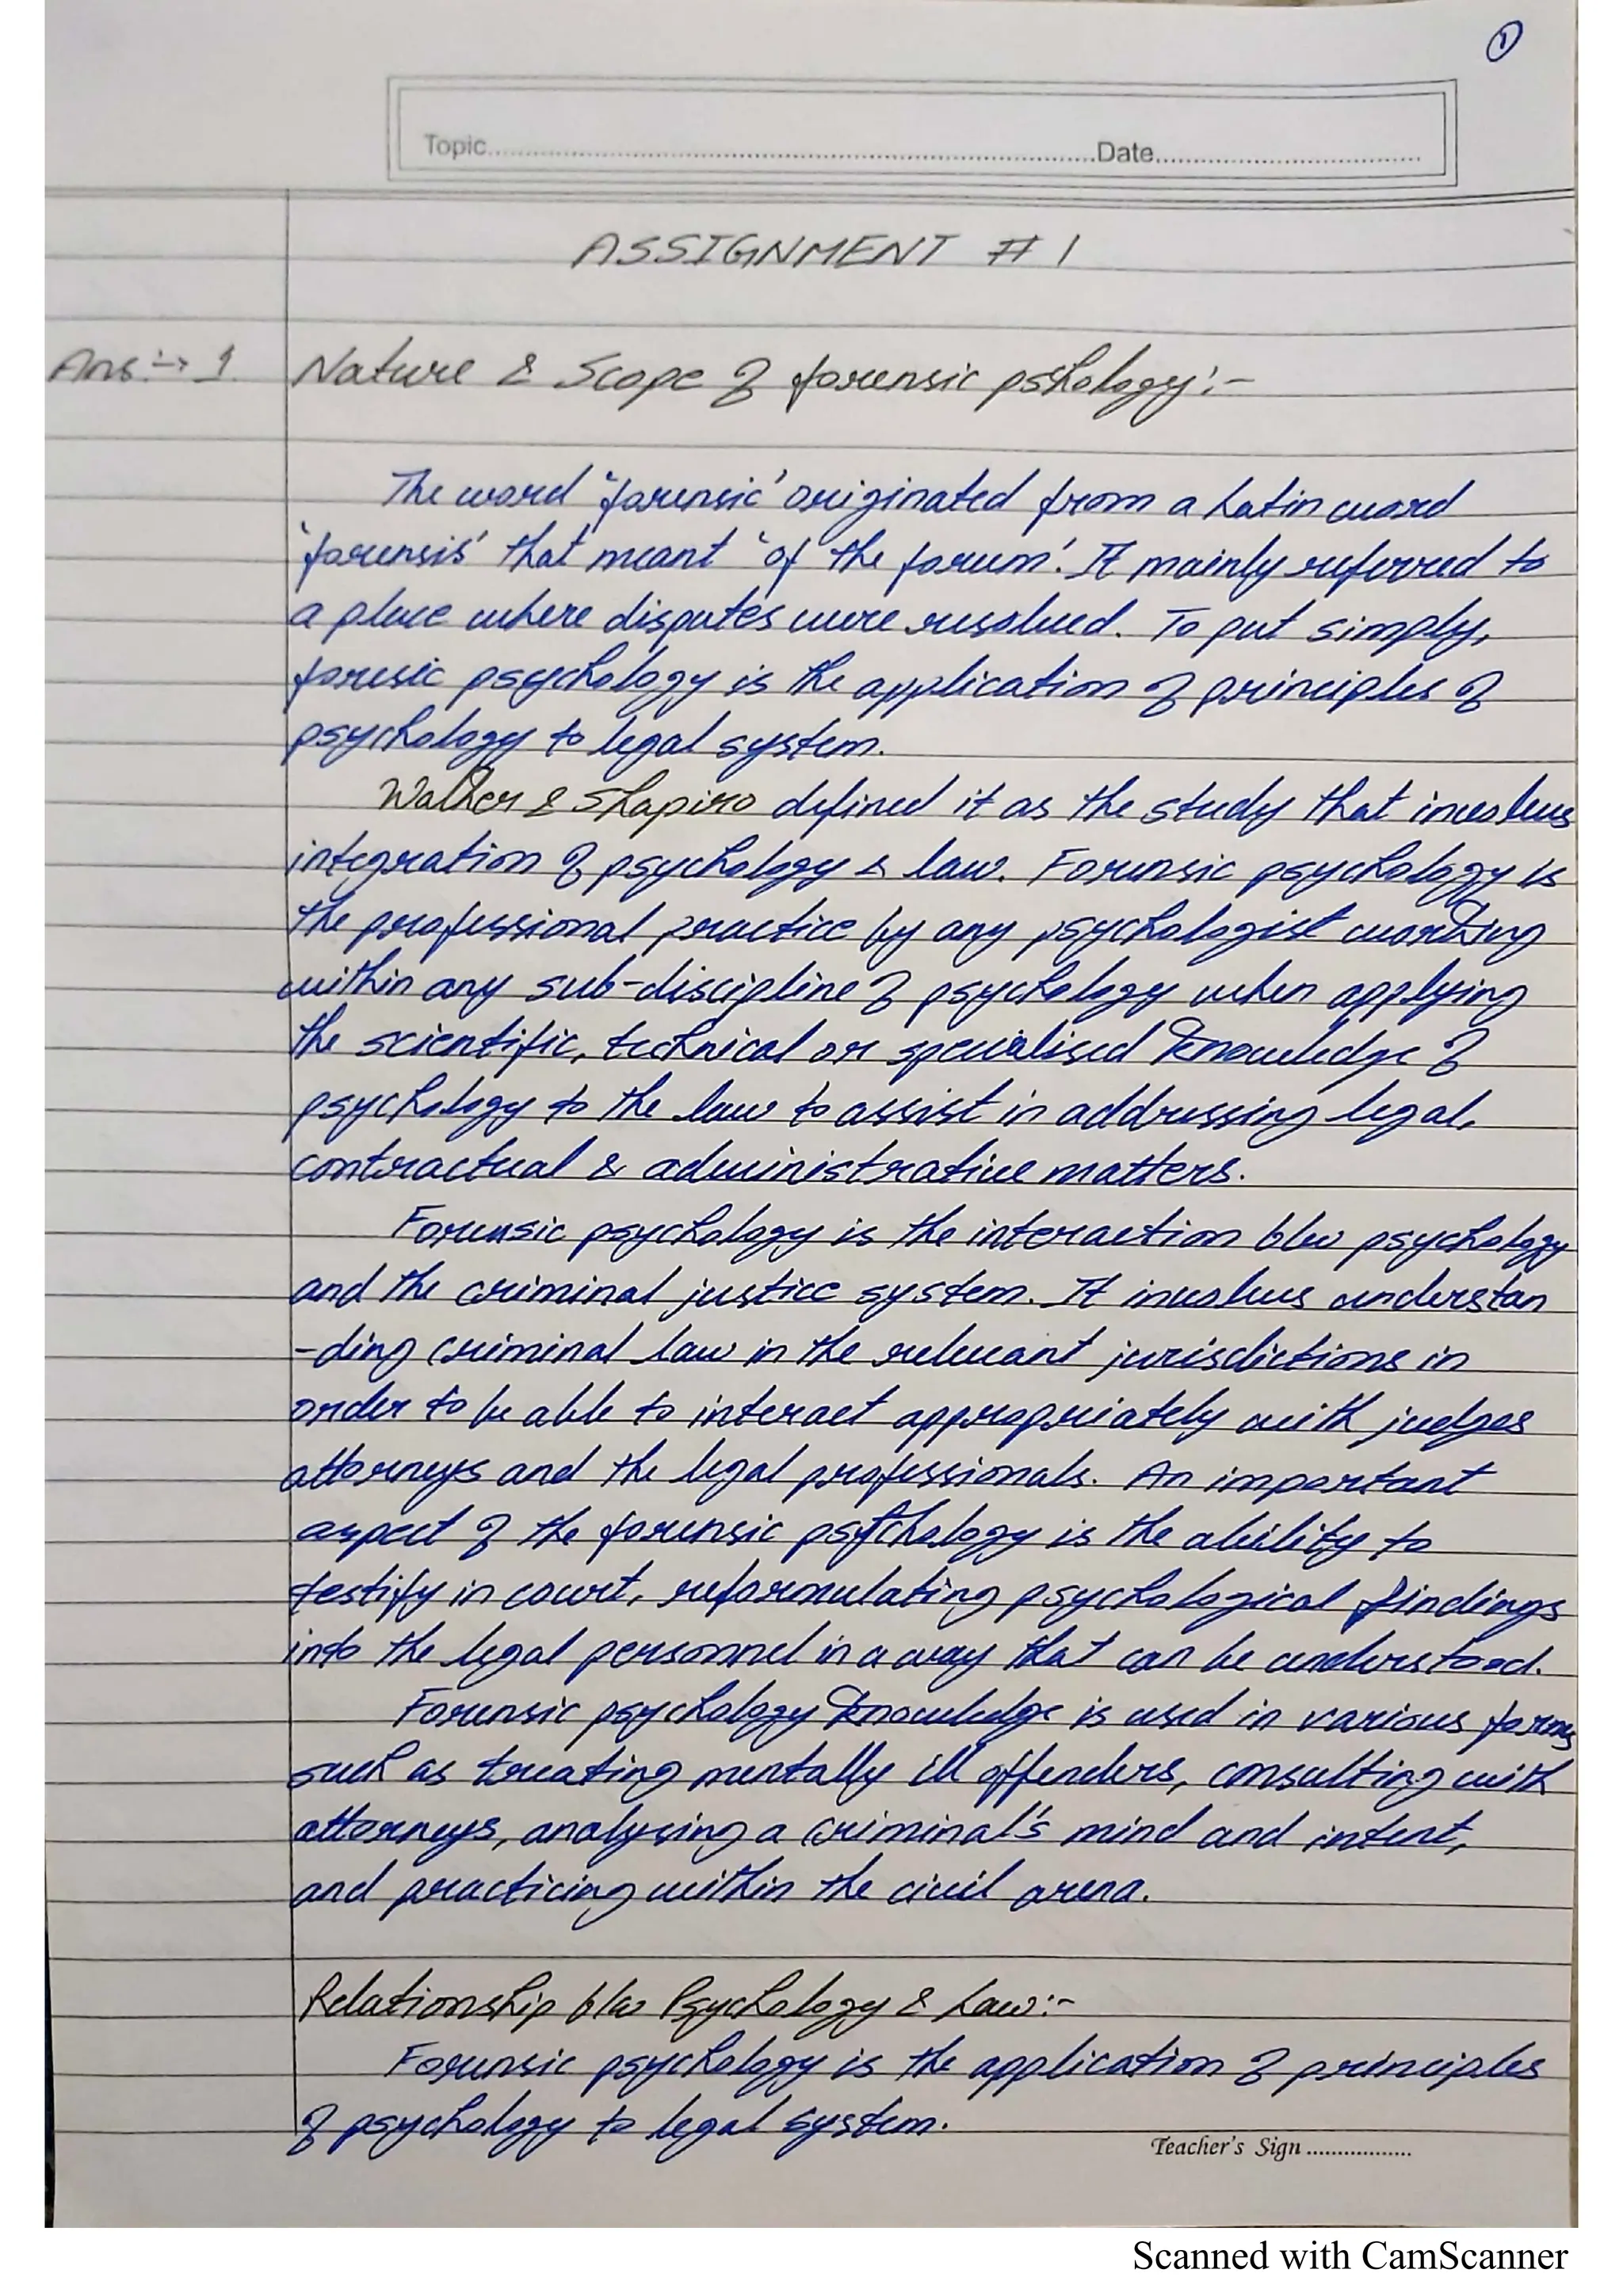 1
Topic..........Date..........
ASSIGNMENT # 1
Ans:→ 1. Nature & Scope of forensic pshology:-
The word 'forensic' originated from a Latin word
'forensis' that meant 'of the forum'. It mainly referred to
a place where disputes were resolved. To put simply,
foresic psychology is the application of principles of
psychology to legal system.
Walker & Shapiro defined it as the study that involves
integration of psychology & law. Forensic psychology is
the professional practice by any psychologist working
within any sub-discipline of psychology when applying
the scientific, technical or specialised knowledge of
psychology to the law to assist in addressing legal,
contractual & administrative matters.
Forensic psychology is the interaction b/w psychology
and the criminal justice system. It involves understan
-ding criminal law in the relevant jurisdictions in
order to be able to interact appropriately with judges
attorneys and the legal professionals. An important
aspect of the forensic psychology is the ability to
testify in court, reformulating psychological findings
into the legal personnel in a way that can be understood.
Forensic psychology knowledge is used in various forms
such as treating mentally ill offenders, consulting with
attorneys, analysing a criminal's mind and intent,
and practicing within the civil arena.
Relationship b/w Psychology & Law:-
Forensic psychology is the application of principles
of psychology to legal system.
Teacher's Sign ..........
Scanned with CamScanner